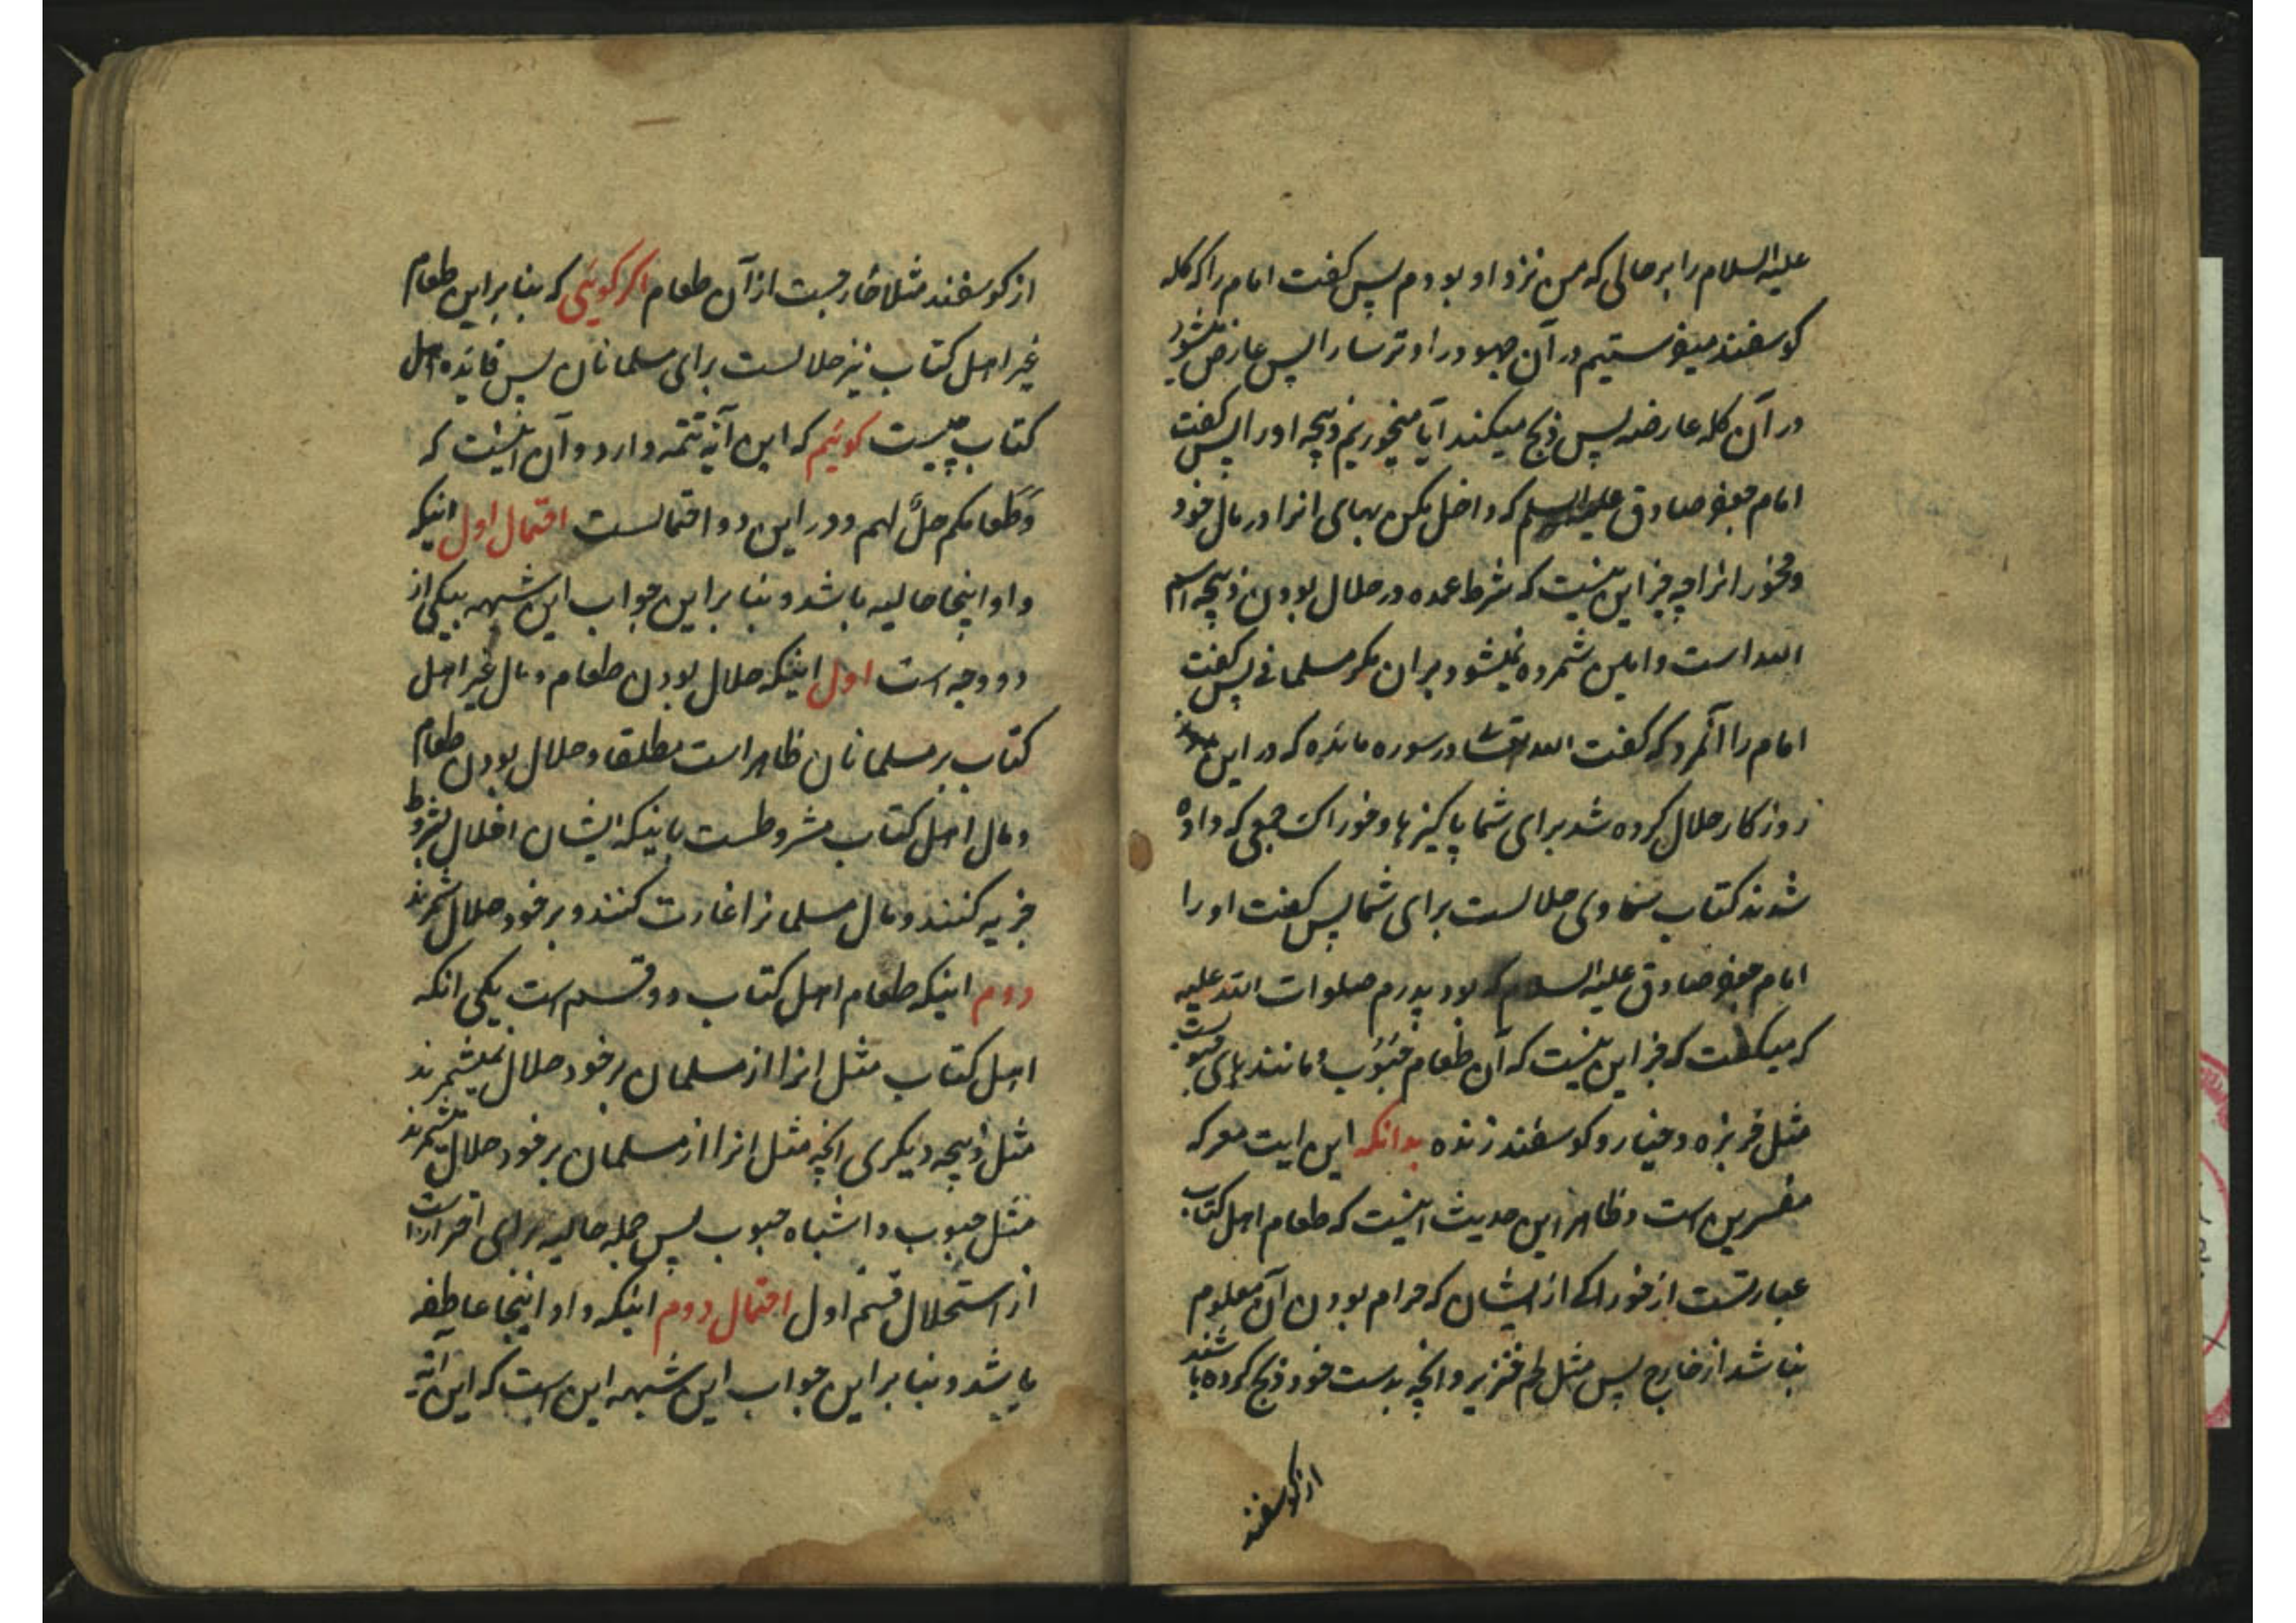 علیه السلام را بر حالی که من نزد او بودم پس گفت امام را که گله
گوسفند میفرستیم در آن یهود را و ترسا را پس عارض میشود
در آن گله عارضه پس ذبح میکند آیا میخوریم ذبیحه او را پس گفت
امام جعفر صادق علیه السلم که داخل مکن بهای انرا در مال خود
و مخور انرا چه جز این نیست که شرط عمده در حلال بودن ذبیحه اسم
الله است و امین شمرده نمیشود بر ان مگر مسلمانی پس گفت
امام را آنمرد که گفت الله تعالی در سوره مائده که در این
روزگار حلال کرده شد برای شما پاکیزها و خوراک جمعی که داده
شدند کتاب سماوی حلالست برای شما پس گفت او را
امام جعفر صادق علیه السلام که بود پدرم صلوات الله علیه
که میگفت که جز این نیست که آن طعام حبوب و مانندهای حبوبست
مثل خربزه و خیار و گوسفند زنده بدانکه این ایت معرکه
مفسرین است و ظاهر این حدیث اینست که طعام اهل کتاب
عبارتست از خوراکی از ایشان که حرام بودن آن معلوم
نباشد از خارج پس مثل لحم خنزیر و انچه بدست خود ذبح کرده باشند
از گوسفند
از گوسفند مثلا خارجست از آن طعام اگر گوئی که بنا بر این طعام
غیر اهل کتاب نیز حلالست برای مسلمانان پس فائده اهل
کتاب چیست گوئیم که این آیه تتمه دارد و آن اینست که
وَطَعامکم حلٌّ لهم و در این دو احتمالست احتمال اول اینکه
واو اینجا حالیه باشد و بنا بر این جواب این شبهه بیکی از
دو وجه است اول اینکه حلال بودن طعام و مال غیر اهل
کتاب بر مسلمانان ظاهر است مطلقا و حلال بودن طعام
و مال اهل کتاب مشروطست باینکه ایشان اخلال بشروط
جزیه کنند و مال مسلمانرا غارت کنند و بر خود حلال شمرند
دوم اینکه طعام اهل کتاب دو قسم است یکی انکه
اهل کتاب مثل انرا از مسلمان بر خود حلال نمیشمرند
مثل ذبیحه دیگری انچه مثل انرا از مسلمان بر خود حلال میشمرند
مثل حبوب و اشباه حبوب پس جمله حالیه برای احتراز است
از استحلال قسم اول احتمال دوم اینکه واو اینجا عاطفه
باشد و بنا بر این جواب این شبهه این است که این آیه